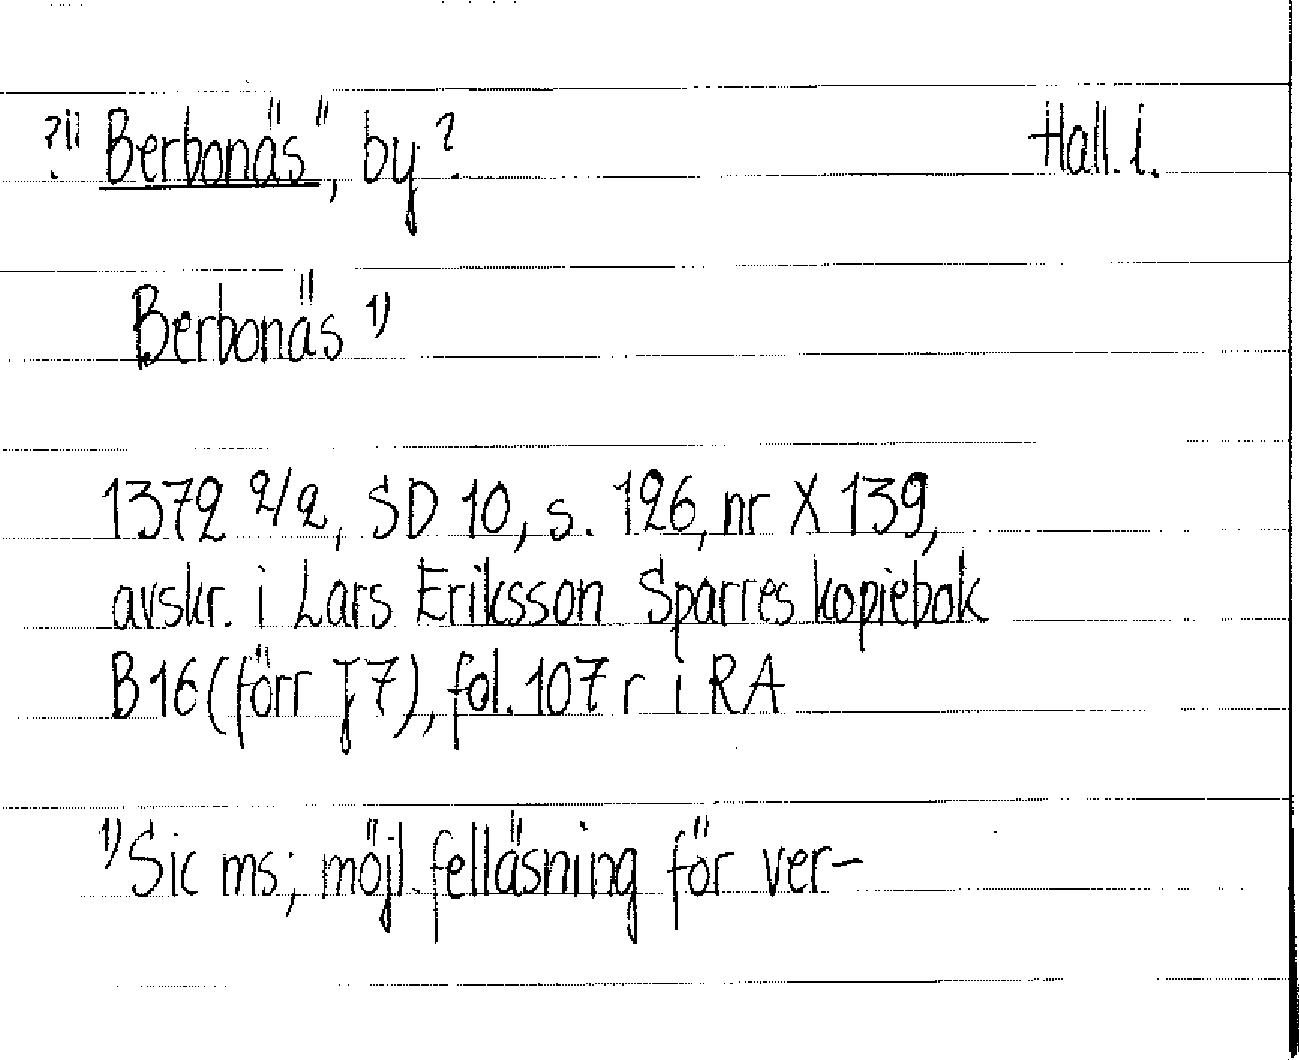 ?"Berbonäs", by? Hall. l.
Berbonäs 1)
1372 2/2, SD 10, s. 126, nr X 139,
avskr. i Lars Eriksson Sparres kopiebok
B 16 (förr J 7), fol. 107 r i RA
1) Sic ms; möjl. felläsning för ver-